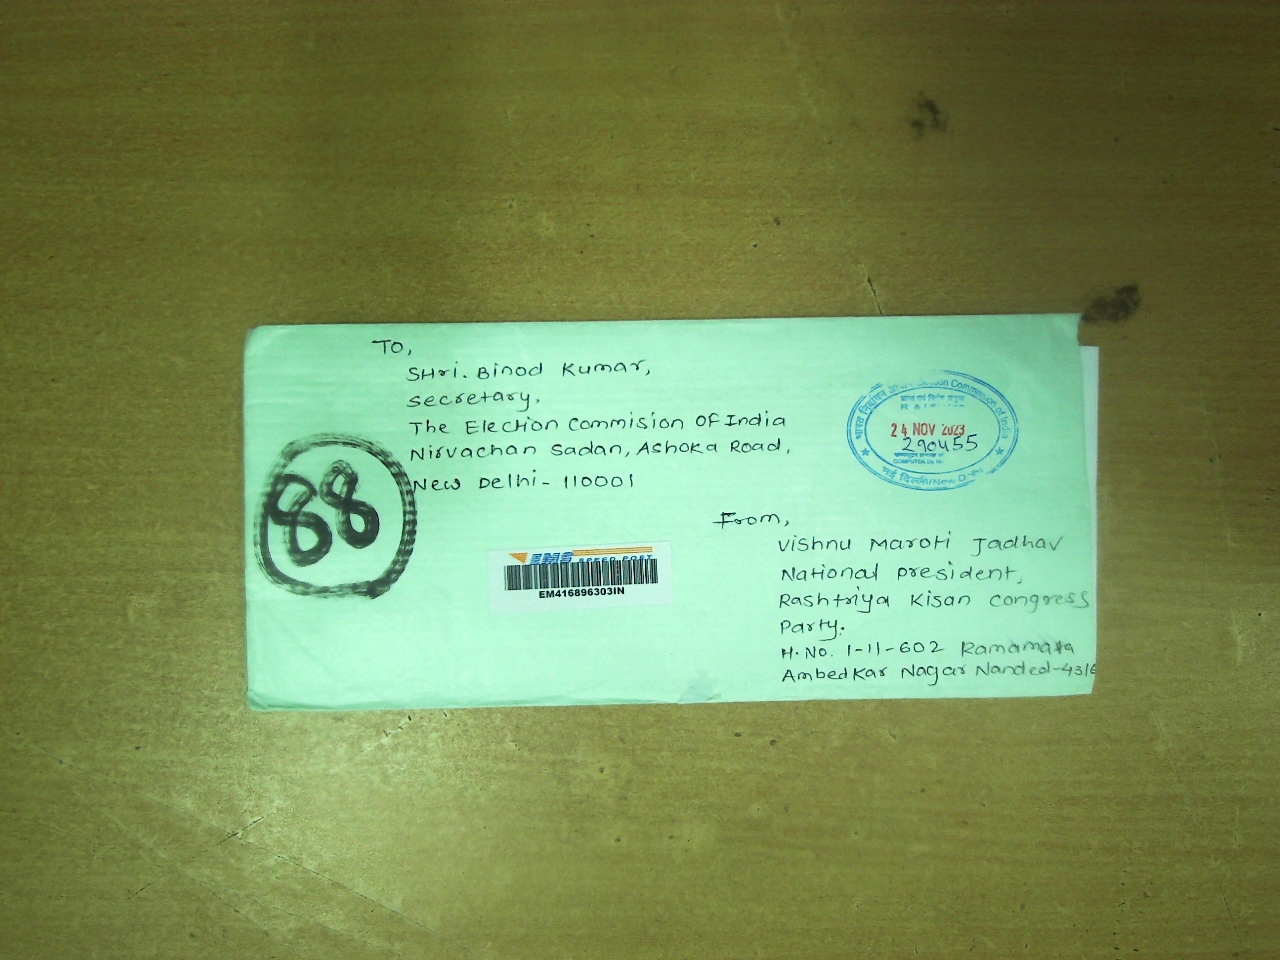 TO,
SHri. Binod Kumar,
secretary,
The Election Commision OF India
Nirvachan Sadan, Ashoka Road,
New Delhi - 110001
88
भारत निर्वाचन Election Commission of India
24 NOV 2023
290455
COMPUTER
नई दिल्ली/New
EMS SPEED POST
EM416896303IN
From,
Vishnu Maroti Jadhav
National president,
Rashtriya Kisan congress
Party.
H. No. 1-11-602 Ramamata
Ambedkar Nagar Nanded-4316